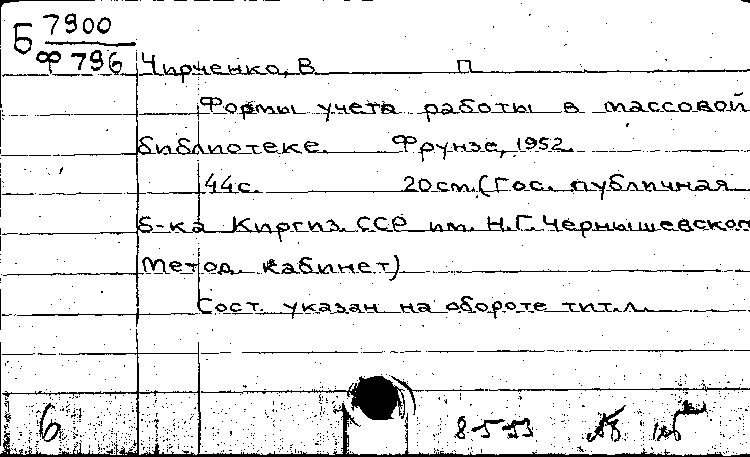 Б 7900
Ф 796 Чирченко, В П
Формы учета работы в массовой
библиотеке. Фрунзе, 1952.
44с. 20см. (Гос. публичная
б-ка Киргиз. ССР им. Н.Г. Чернышевског
Метод. кабинет)
Сост. указан на обороте тит.л.
6 8-5-53